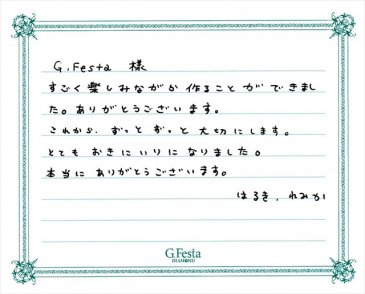 G.Festa 様
すごく楽しみながが作ることができまし
た。ありがとうございます。
これから、ずっと ずっと 大切にします。
とても おきにいりに なりました。
本当に ありがとうございます。
はるき、れみか
G.Festa
DIAMOND